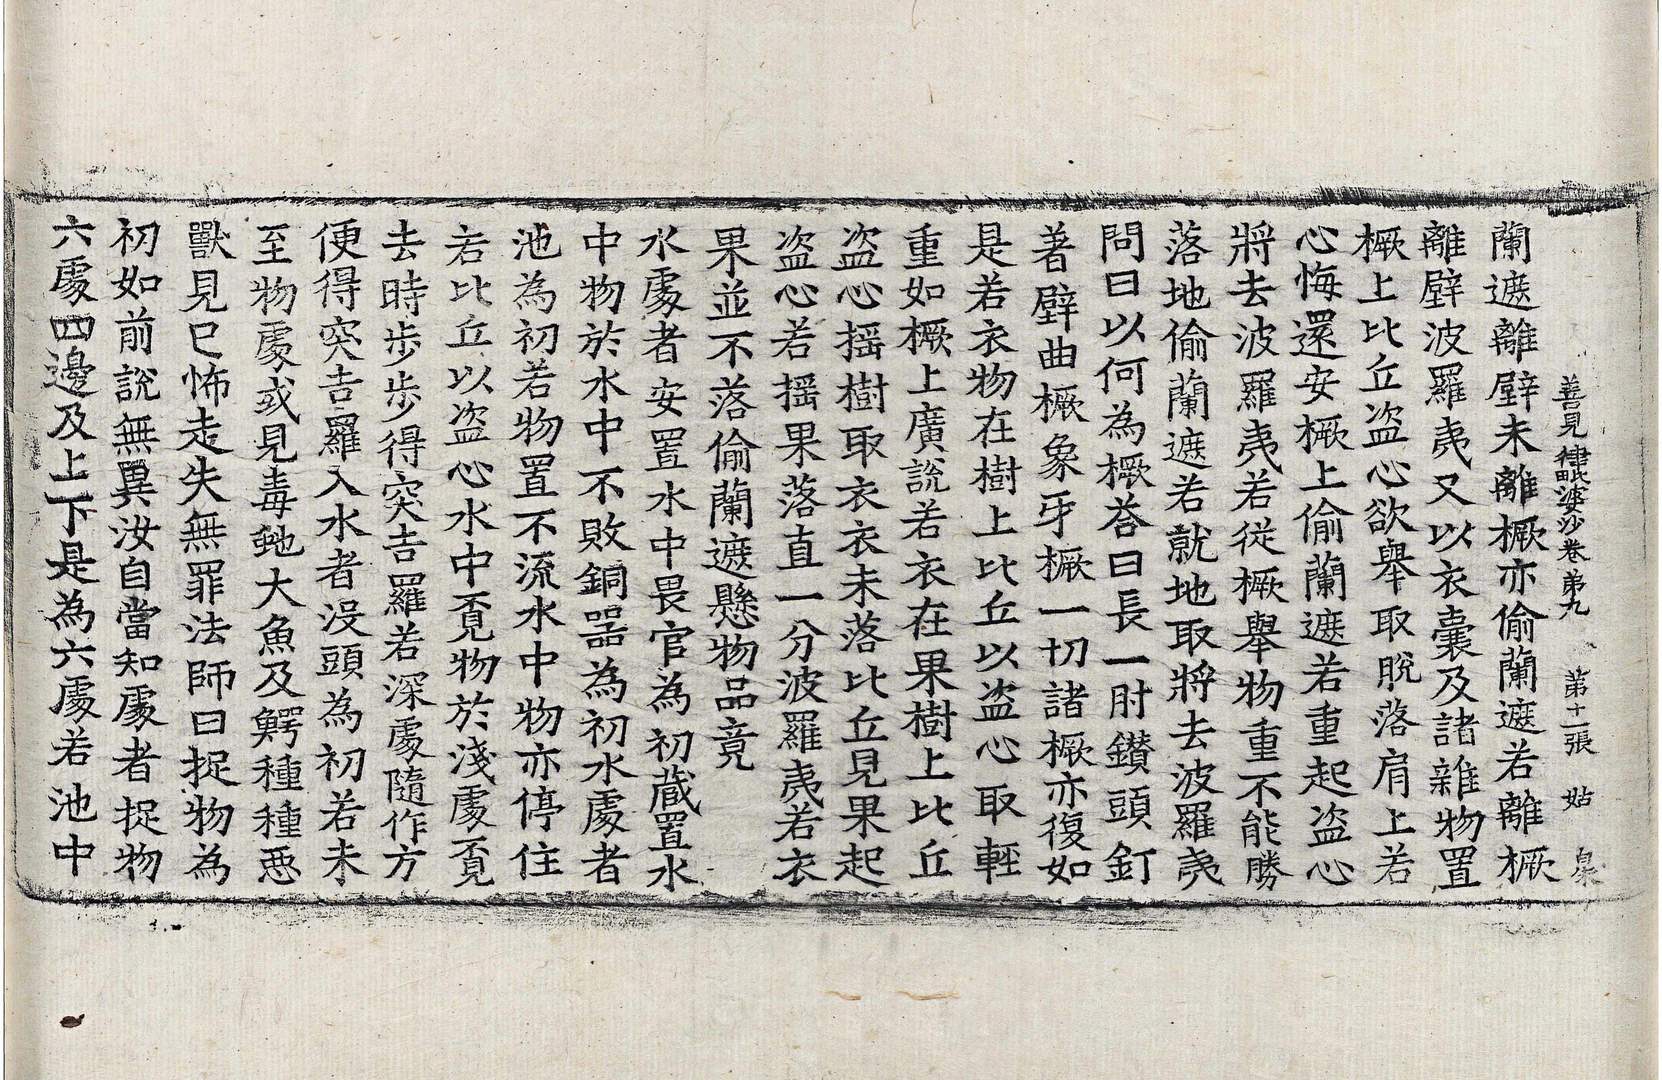 善見律毗婆沙卷弟九 第十一張 姑 㮃
蘭遮離壁未離橛亦偷蘭遮若離橛
離壁波羅夷又以衣囊及諸雜物置
橛上比丘盗心欲舉取脫落肩上若
心悔還安橛上偷蘭遮若重起盗心
將去波羅夷若從橛舉物重不能勝
落地偷蘭遮若就地取將去波羅夷
問曰以何為橛荅曰長一肘鑽頭釘
著壁曲橛象牙橛一切諸橛亦復如
是若衣物在樹上比丘以盗心取輕
重如橛上廣說若衣在果樹上比丘
盗心摇樹取衣衣未落比丘見果起
盗心若摇果落直一分波羅夷若衣
果並不落偷蘭遮懸物品竟
水處者安置水中畏官為初藏置水
中物於水中不敗銅器為初水處者
池為初若物置不流水中物亦停住
若比丘以盗心水中覔物於淺處覔
去時步步得突吉羅若深處隨作方
便得突吉羅入水者沒頭為初若未
至物處或見毒虵大魚及鰐種種惡
獸見已怖走失無罪法師曰捉物為
初如前說無異汝自當知處者捉物
六處四邊及上下是為六處若池中